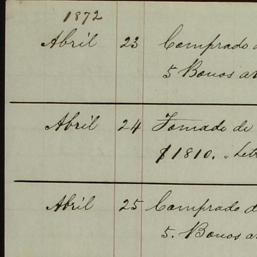 1872
Abril 23 Comprado
5 Bonos
Abril 24 Tomado de
$1810.
Abril 25 Comprado
5. Bonos